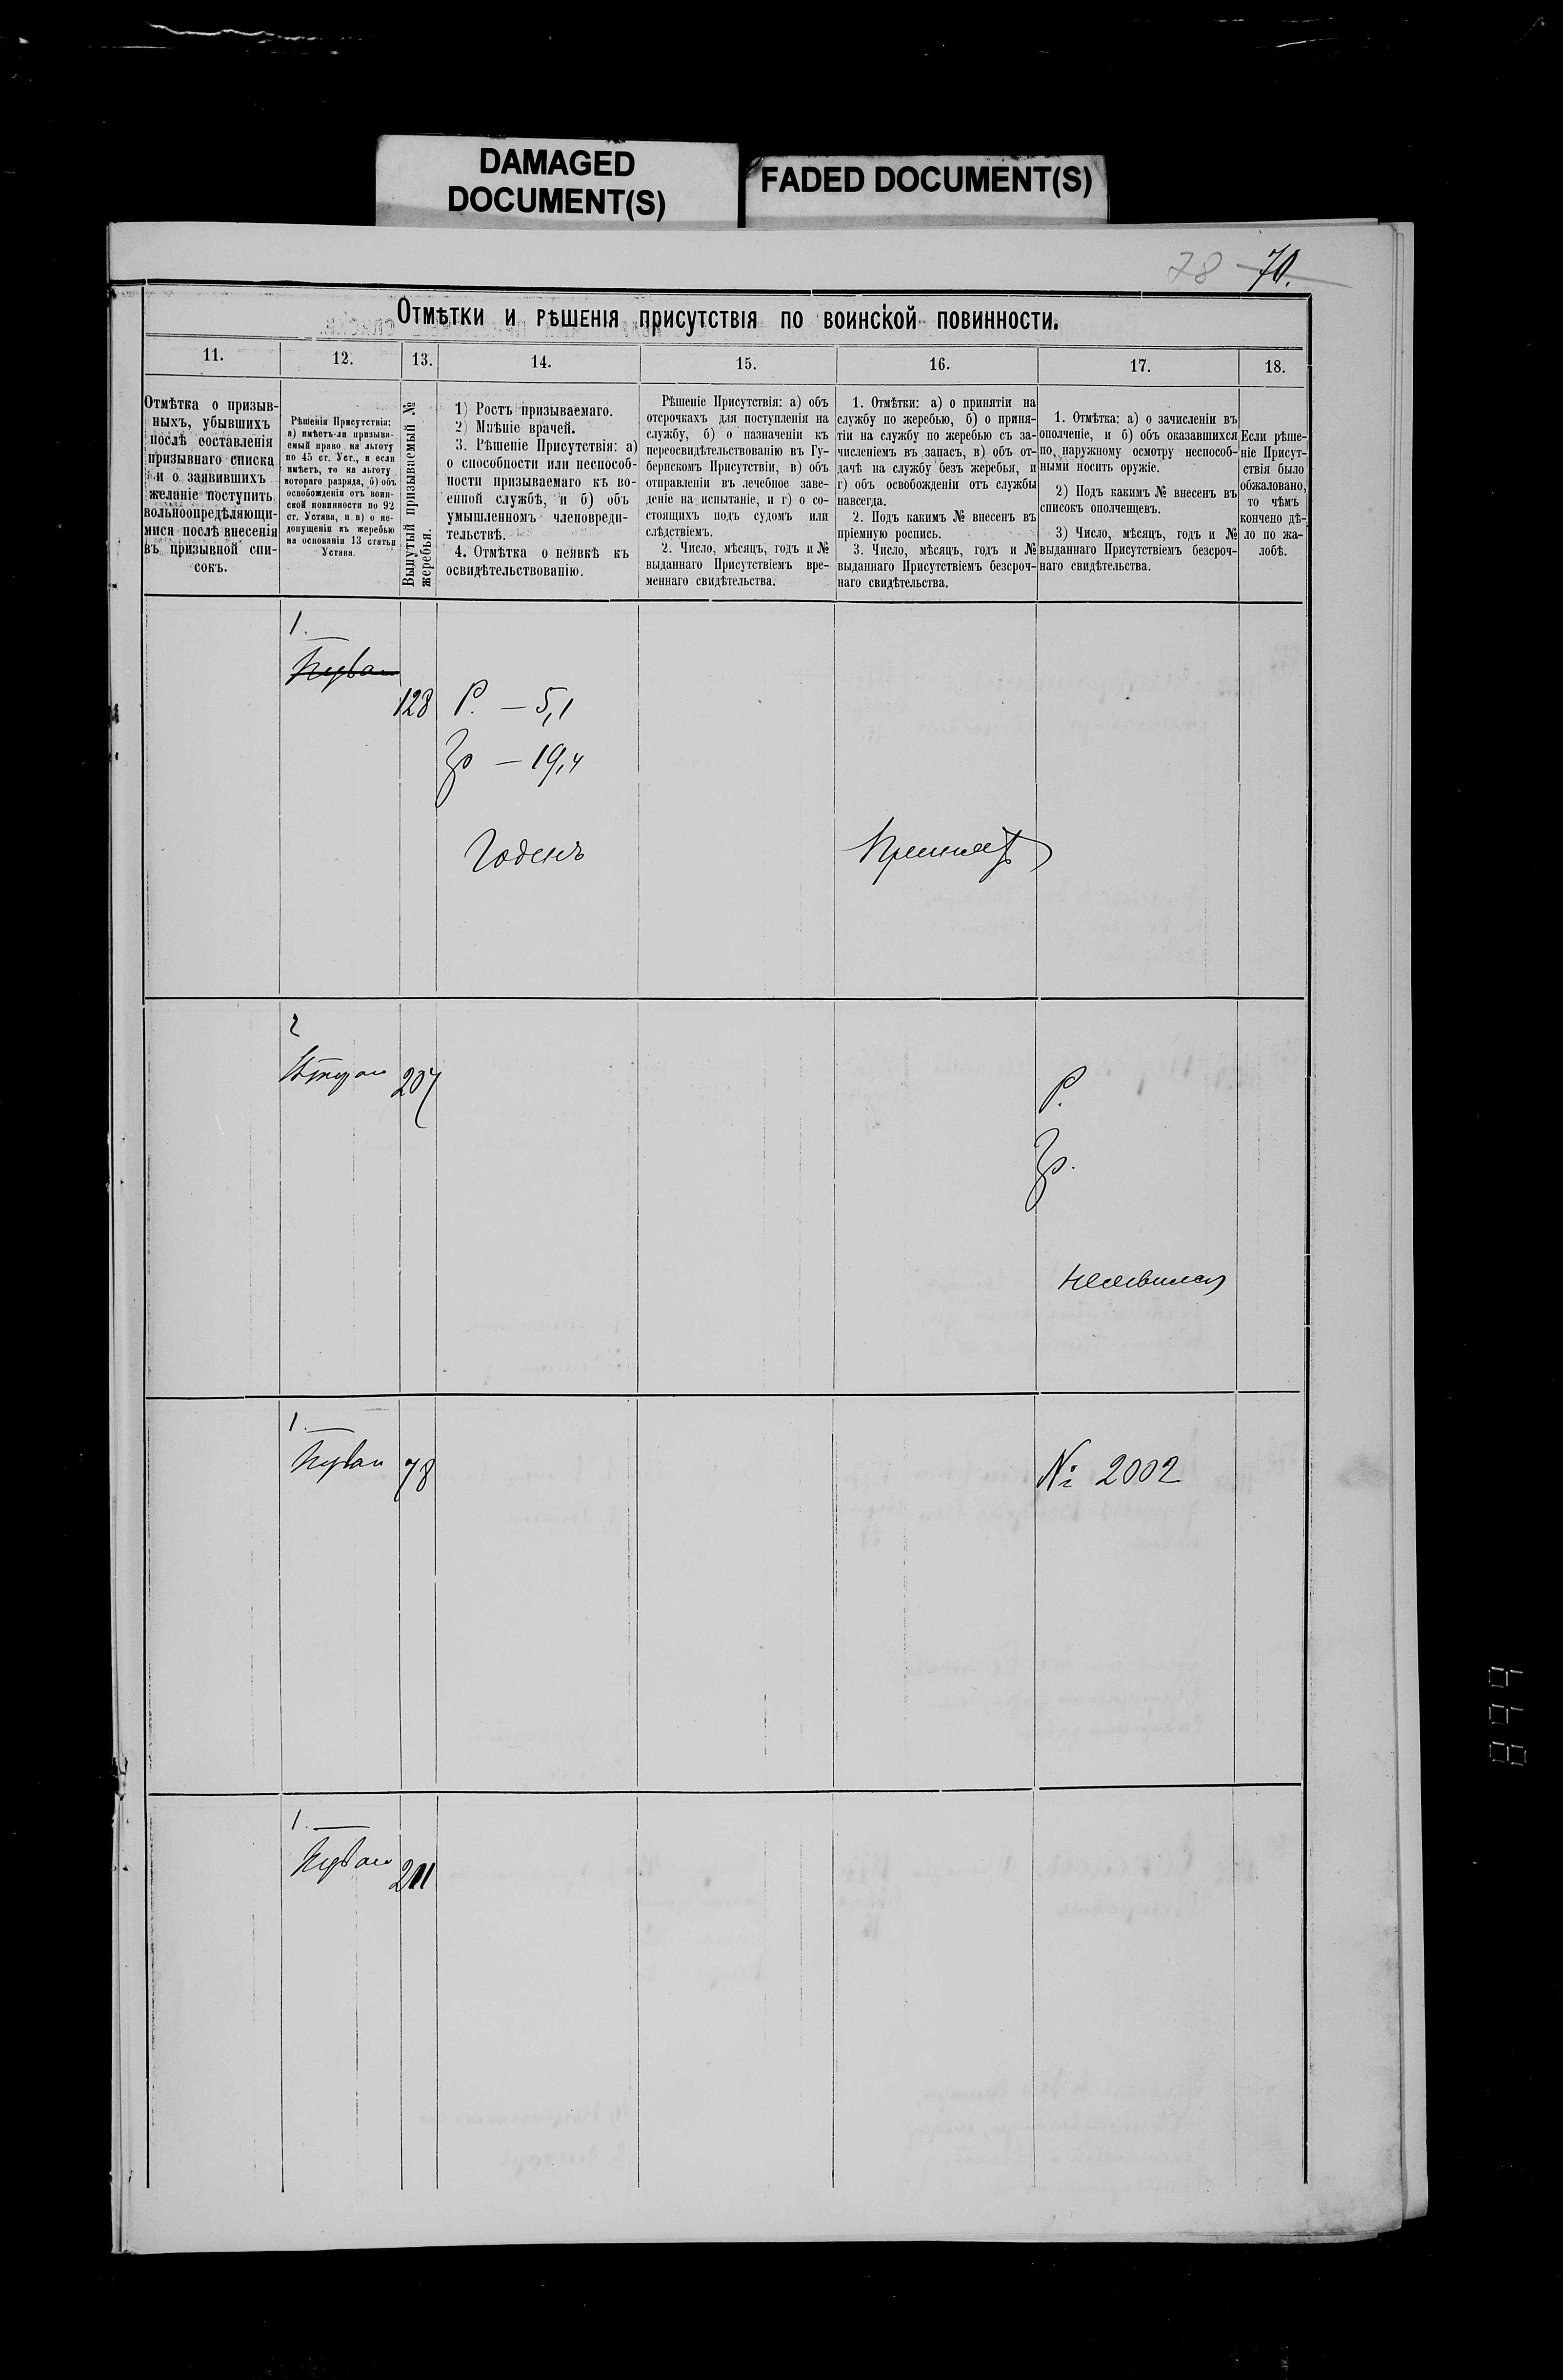 DAMAGED
DOCUMENT(S)
FADED DOCUMENT(S)
78 70.
Отмѣтки и рѣшенія присутствія по воинской повинности.
11.
12.
13.
14.
15.
16.
17.
18.
Отмѣтка о призыв-
ныхъ, убывшихъ
послѣ составленія
призывнаго списка
и о заявившихъ
желаніе поступить
вольноопредѣляющи-
мися послѣ внесенія
въ призывной спи-
сокъ.
Рѣшенія Присутствія:
а) имѣетъ-ли призыва-
емый право на льготу
по 45 ст. Уст., и если
имѣетъ, то на льготу
котораго разряда, б) объ
освобожденіи отъ воин-
ской повинности по 92
ст. Устава, и в) о не-
допущеніи къ жеребью
на основаніи 13 статьи
Устава.
Вынутый призываемый №
жеребья.
1) Ростъ призываемаго.
2) Мнѣніе врачей.
3. Рѣшеніе Присутствія: а)
о способности или неспособ-
ности призываемаго къ во-
енной службѣ, и б) объ
умышленномъ членовреди-
тельствѣ.
4. Отмѣтка о неявкѣ къ
освидѣтельствованію.
Рѣшеніе Присутствія: а) объ
отсрочкахъ для поступленія на
службу, б) о назначеніи къ
переосвидѣтельствованію въ Гу-
бернскомъ Присутствіи, в) объ
отправленіи въ лечебное заве-
деніе на испытаніе, и г) о со-
стоящихъ подъ судомъ или
слѣдствіемъ.
2. Число, мѣсяцъ, годъ и №
выданнаго Присутствіемъ вре-
меннаго свидѣтельства.
1. Отмѣтки: а) о принятіи на
службу по жеребью, б) о приня-
тіи на службу по жеребью съ за-
численіемъ въ запасъ, в) объ от-
дачѣ на службу безъ жеребья, и
г) объ освобожденіи отъ службы
навсегда.
2. Подъ какимъ № внесенъ въ
пріемную роспись.
3. Число, мѣсяцъ, годъ и №
выданнаго Присутствіемъ безсроч-
наго свидѣтельства.
1. Отмѣтка: а) о зачисленіи въ
ополченіе, и б) объ оказавшихся
по наружному осмотру неспособ-
ными носить оружіе.
2) Подъ какимъ № внесенъ въ
списокъ ополченцевъ.
3) Число, мѣсяцъ, годъ и №
выданнаго Присутствіемъ безсроч-
наго свидѣтельства.
Если рѣше-
ніе Присут-
ствія было
обжаловано,
то чѣмъ
кончено дѣ-
ло по жа-
лобѣ.
1.
Первая
128
Р. — 5,1
Гр — 19,4
Годенъ
Принятъ
2
Вторая
207
Р.
Гр.
Неявился
1.
Первая
78
№ 2002
1.
Первая
201
899